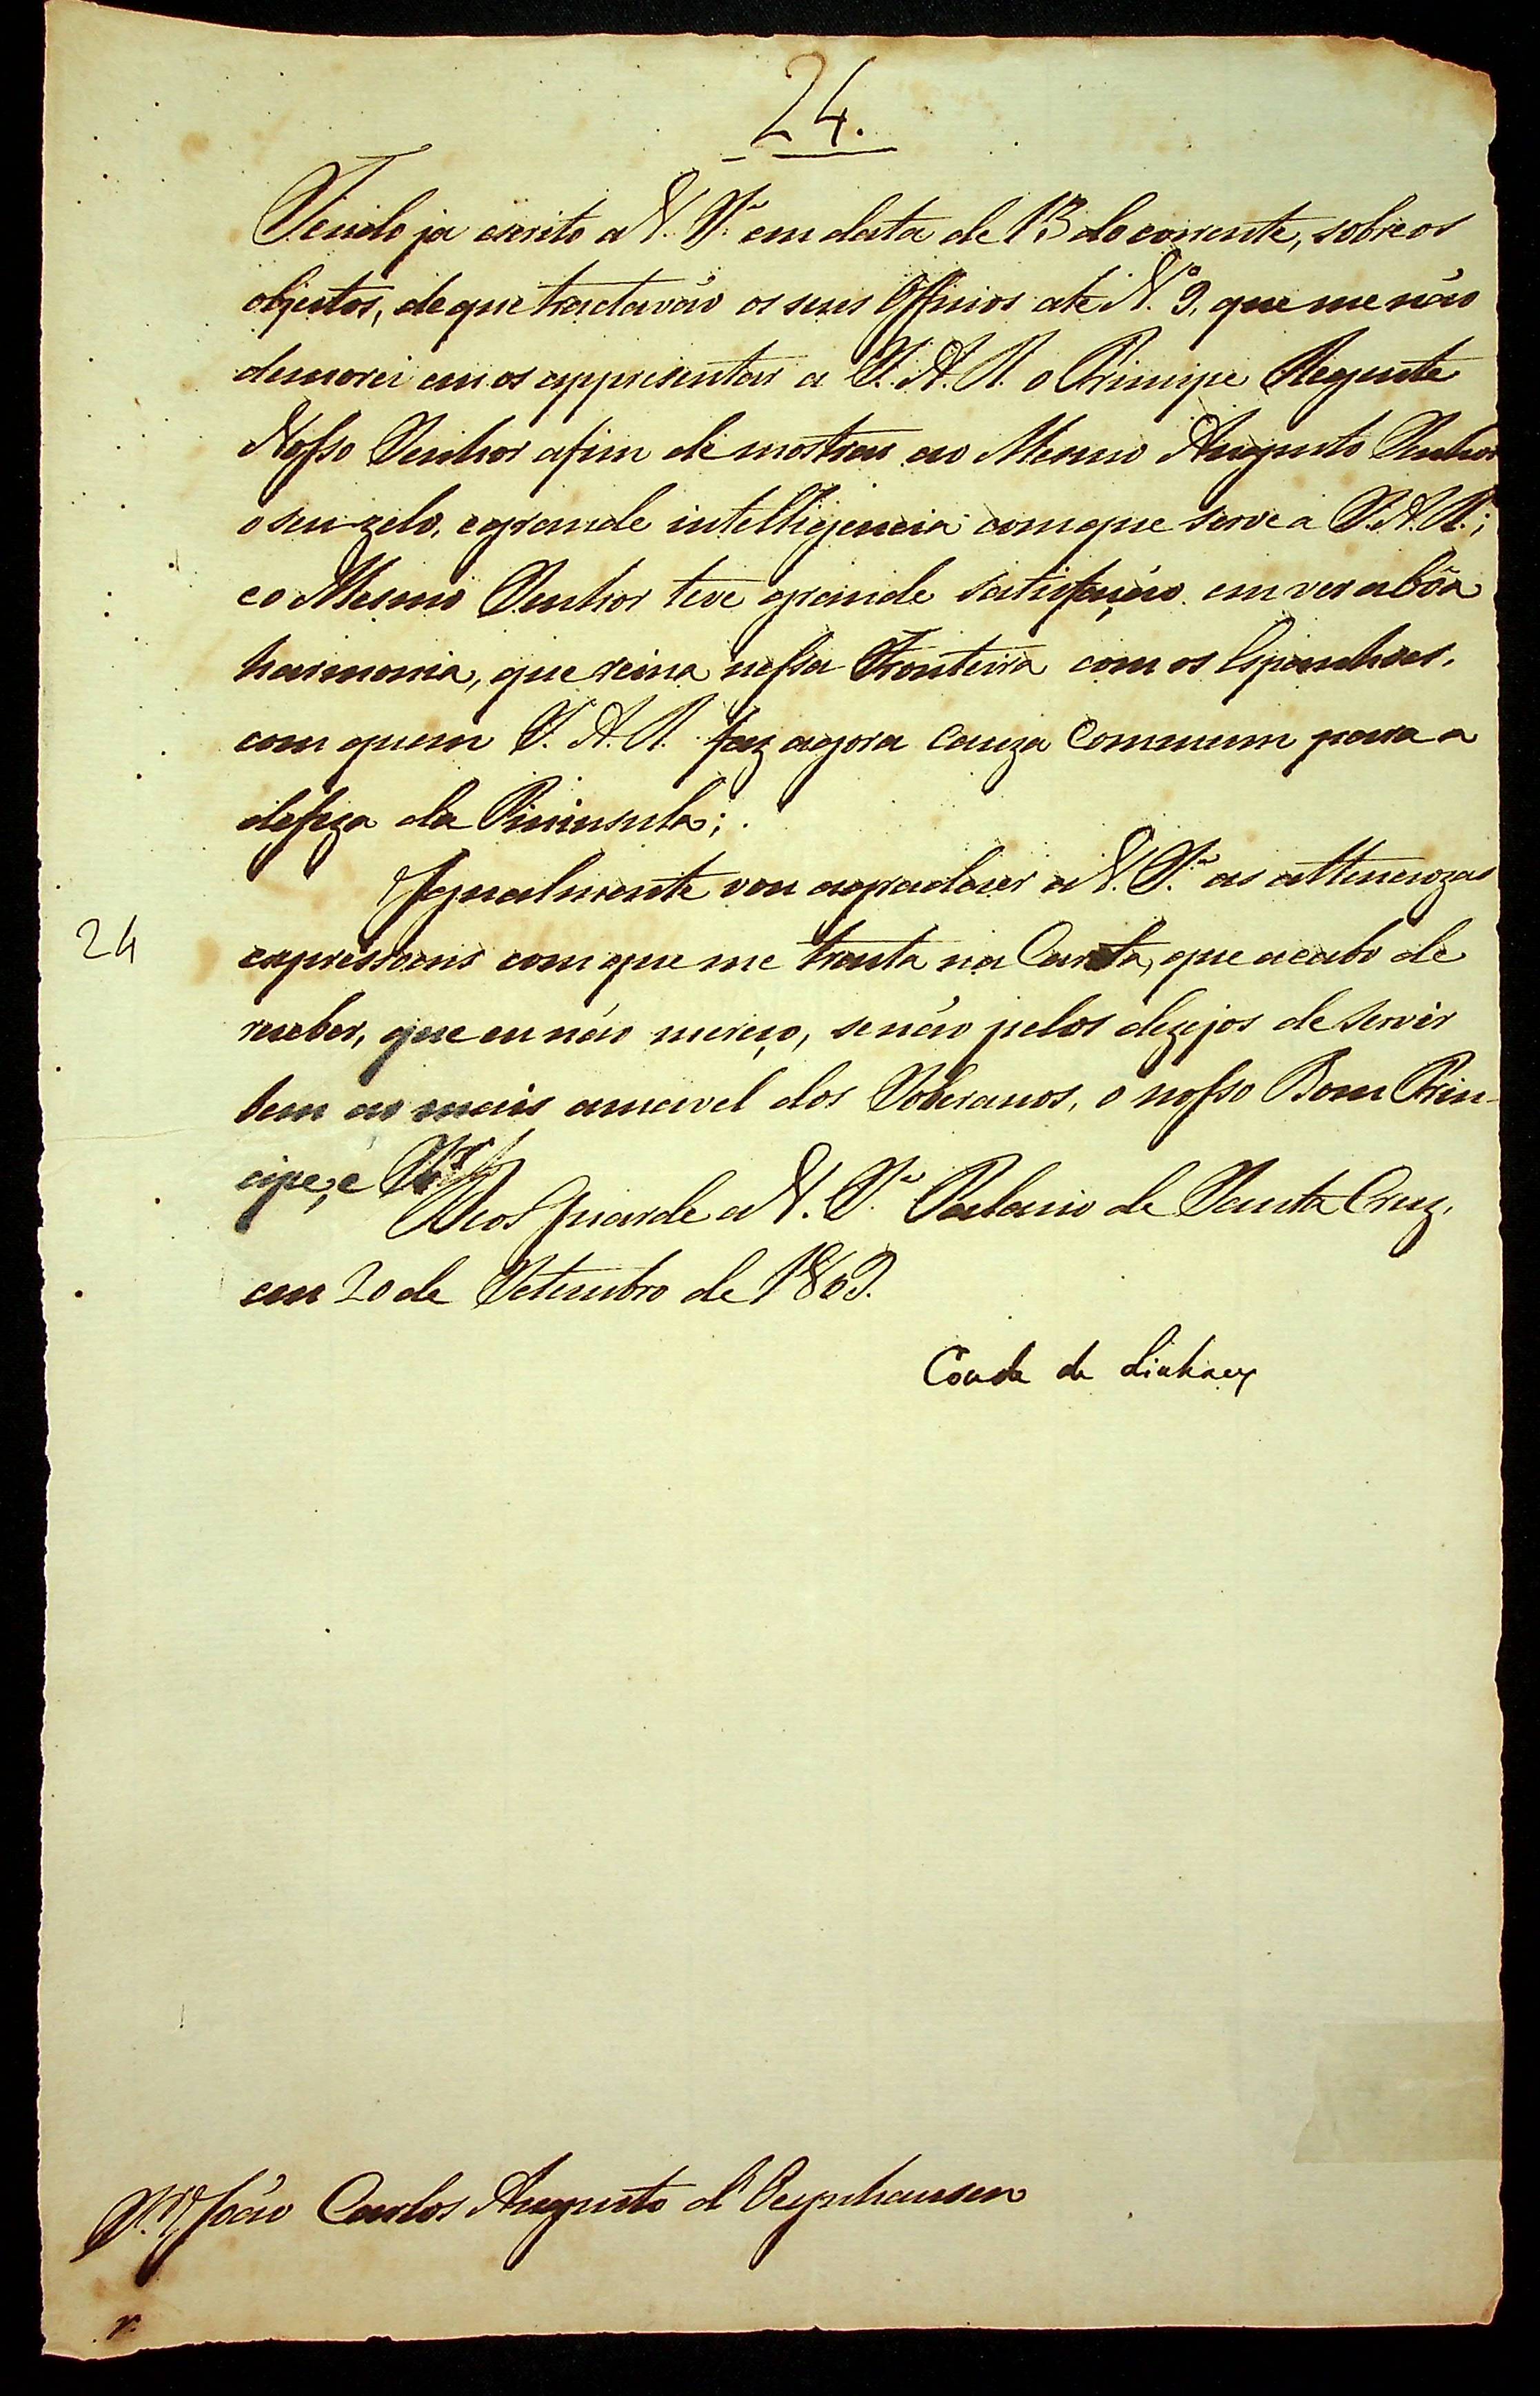 24.
Tendo ja escrito a V. S.ª em data de 13 do corrente, sobre os
objectos, de que tractavão os seus Officios até N.º 9, que me não
demorei em os appresentar a S. A. R. o Principe Regente
Nosso Senhor afim de mostrar ao Mesmo Augusto Senhor
o seu zelo, e grande intelligencia com que serve a S. A. R.;
e o Mesmo Senhor teve grande satisfação em ver a bôa
harmonia, que reina nessa Fronteira com os Espanhoes,
com quem S. A. R. faz agora Cauza Commum para a
defeza da Pininsula;
Igualmente vou agradecer a V. S.ª as attencozas
24
expressoens com que me tracta na Carta, que acabo de
receber, que eu não mereço, senão pelos dezejos de servir
bem ao mais amavel dos Soberanos, o nosso Bom Prin-
cipe, e S.r
Deos Guarde a V. S.ª Palacio de Santa Cruz,
em 20 de Setembro de 1809.
Conde de Linhares
S.r João Carlos Augusto d'Oeynhausen